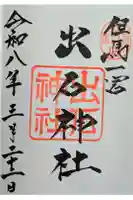 但馬一宮
出石神社
出石
神社
令和八年三月二十一日